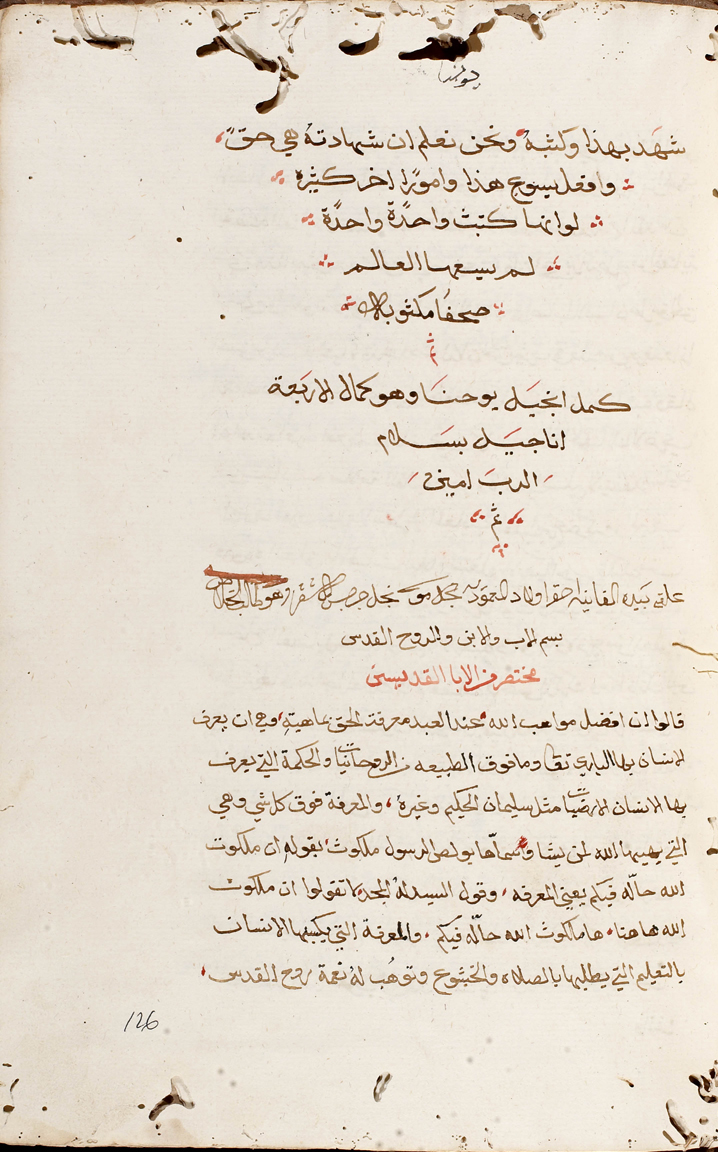 يوحنا
شهد بهذا وكتبه ونحن نعلم ان شهادته هي حق
وافعل يسوع هذا وامورًا اخر كثيره
لو انها كتبت واحدةً واحدةً
لم يسعها العالم
صحفًا مكتوبه
تم
كمل انجيل يوحنا وهو كمال الاربعة
اناجيل بسلام
الرب امين
تم
علقه بيده الفانيه احقر اولاد المعموديه
بسم الاب والابن والروح القدس
مختصر من الابا القديسين
قالوا ان افضل مواهب الله عند العبد معرفة الحق بماهيته وهي ان يعرف
الانسان بها الباري تعا وما فوق الطبيعه من الروحانيا والحكمة التي يعرف
بها الانسان الارضيا مثل سليمان الحكيم وغيره، والمعرفة فوق كل شي وهي
التي يهبها الله لمن يشا واسماها بولص الرسول ملكوت بقوله ان ملكوت
الله حاله فيكم يعني المعرفه، وقول السيد له المجد لا تقولوا ان ملكوت
الله هاهنا، ها ملكوت الله حاله فيكم، والمعرفة التي يكسبها الانسان
بالتعليم التي يطلبها بالصلاه والخشوع وتوهب له نعمة روح القدس،
126